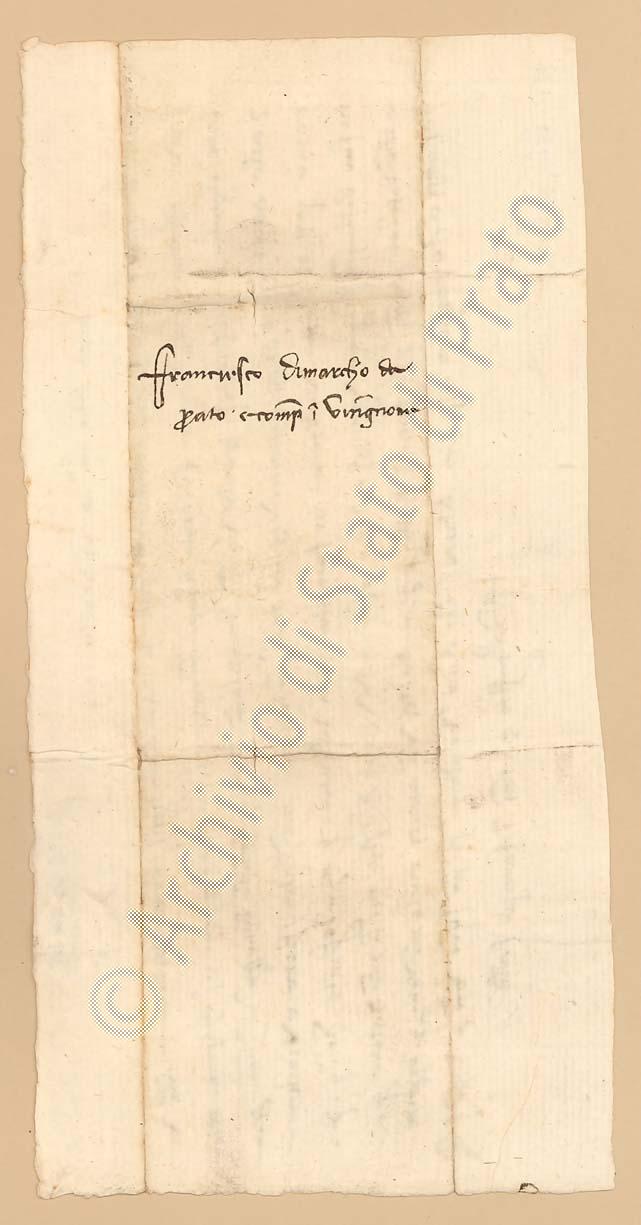 Franciescho dimarcho da
Prato e comp ī Vingnone
© Archivio di Stato di Prato